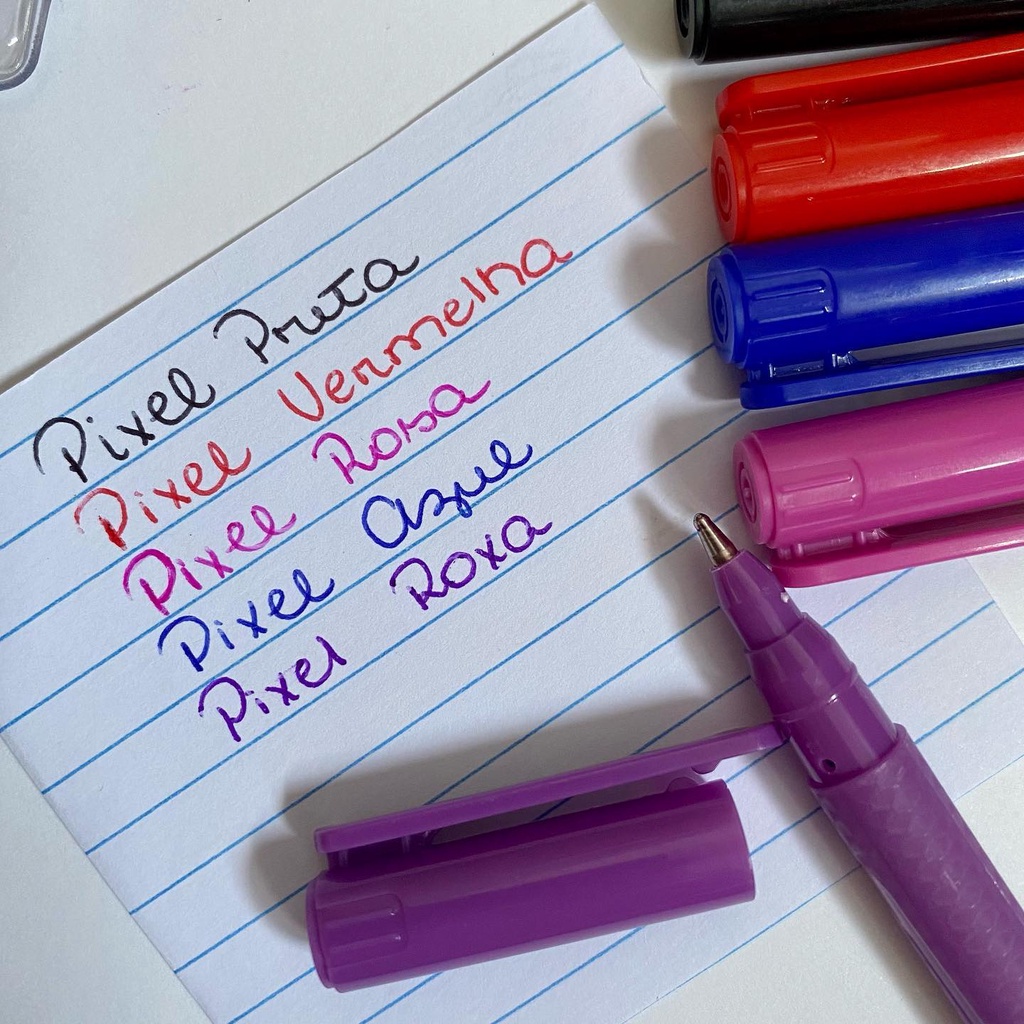 Pixel Preta
Pixel Vermelha
Pixel Rosa
Pixel Azul
Pixel Roxa